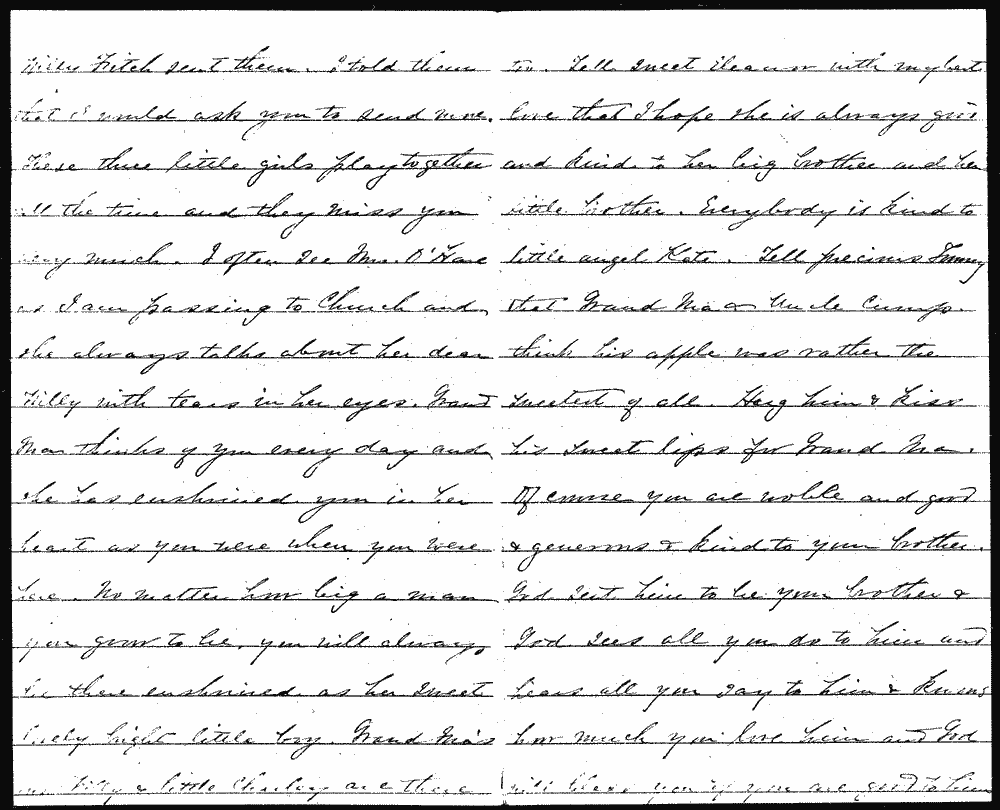 Willy Fitch sent them. I told them
that I would ask you to send more.
These three little girls play together
all the time and they miss you
very much. I often see Mrs. O'Hare
as I am passing to Church and
she always talks about her dear
Willy with tears in her eyes. Grand
Ma thinks of you every day and
she has enshrined you in her
heart as you were when you were
here. No matter how big a man
you grow to be, you will always
be there enshrined as her sweet
lovely bright little boy. Grand Ma's
Willy & little Charley are there
to. Tell sweet Eleanor with my best
love that I hope she is always good
and kind to her big brother and her
little brother. Everybody is kind to
little angel Kate. Tell precious
that Grand Ma & Uncle Cump
think his apple was rather the
sweetest of all. Hug him & kiss
his sweet lips for Grand Ma.
Of course you are noble and good
& generous & kind to your brother.
God sent him to be your brother &
God sees all you do to him and
hears all you say to him & knows
how much you love him and God
will bless you if you are good to him